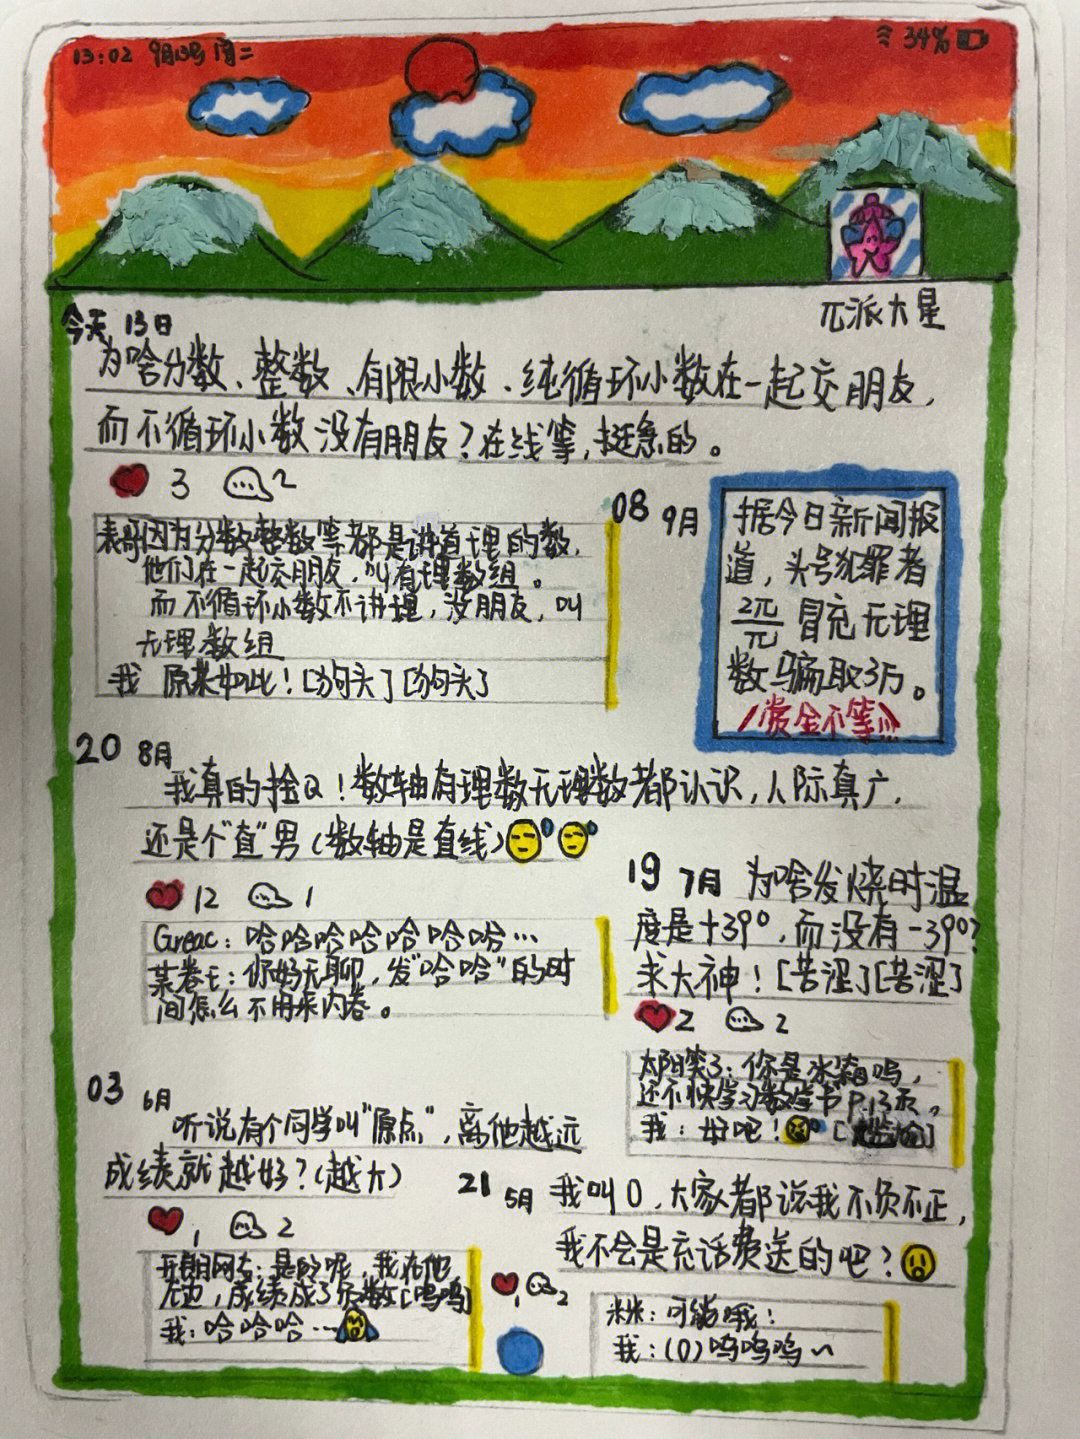 13:02 9月13号 周二
34%
π派大星
今天 13日
为啥分数、整数、有限小数、纯循环小数在一起交朋友,
而不循环小数没有朋友?在线等,挺急的。
3 2
表哥因为分数整数等都是讲道理的数,
他们在一起交朋友,叫有理数组。
而不循环小数不讲理,没朋友,叫
无理数组
我 原来如此![狗头][狗头]
08 9月
据今日新闻报
道,头号犯罪者
2π/π 冒充无理
数骗取3万。
赏金不等!!!
20 8月
我真的拴Q!数轴有理数无理数都认识,人际真广,
还是个"直"男(数轴是直线)
12 1
Greac:哈哈哈哈哈哈哈…
某卷王:你好无聊,发"哈哈"的时
间怎么不用来内卷。
19 7月 为啥发烧时温
度是+39°,而没有-39°?
求大神![苦涩][苦涩]
2 2
太阳笑了:你是冰箱吗,
还不快学习数学书P13页,
我:好吧![尴尬]
03 6月
听说有个同学叫"原点",离他越远
成绩就越好?(越大)
1 2
开朗网友:是的呢,我在他
左边,成绩成了负数[呜呜]
我:哈哈哈…
21 5月 我叫0,大家都说我不负不正,
我不会是充话费送的吧?
1 2
米米:可能哦!
我:(0)呜呜呜~